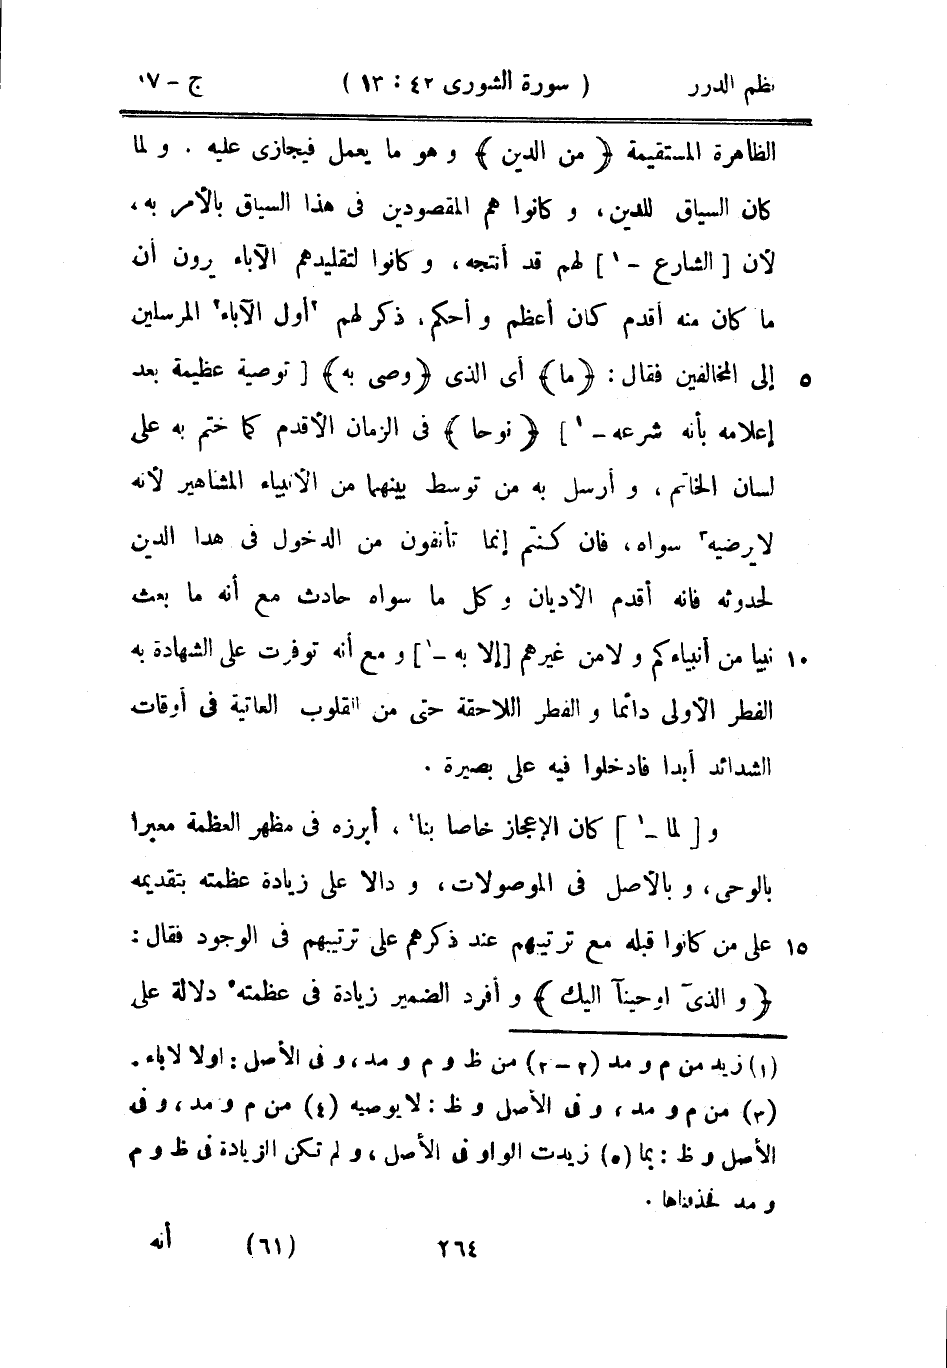 نظم الدرر ( سورة الشورى ٤٢ : ١٣ ) ج – ١٧
الظاهرة المستقيمة ﴿ من الدين ﴾ و هو ما يعمل فيجازى عليه . و لما
كان السياق للدين ، و كانوا هم المقصودين فى هذا السياق بالأمر به ،
لأن [ الشارع – ١ ] لهم قد أنتجه ، و كانوا لتقليدهم الآباء يرون أن
ما كان منه أقدم كان أعظم و أحكم ، ذكر لهم ٢أول الآباء٢ المرسلين
٥ إلى المخالفين فقال : ﴿ ما ﴾ أى الذى ﴿ وصى به ﴾ [ توصية عظيمة بعد
إعلامه بأنه شرعه – ١ ] ﴿ نوحا ﴾ فى الزمان الأقدم كما ختم به على
لسان الخاتم ، و أرسل به من توسط بينهما من الأنبياء المشاهير لأنه
لايرضيه٣ سواه ، فان كنتم إنما تأنفون من الدخول فى هدا الدين
لحدوثه فانه أقدم الأديان و كل ما سواه حادث مع أنه ما بعث
١٠ نبيا من أنبياءكم و لامن غيرهم [ إلا به – ١ ] و مع أنه توفرت على الشهادة به
الفطر الأولى دائما و الفطر اللاحقة حتى من القلوب العاتية فى أوقات
الشدائد أبدا فادخلوا فيه على بصيرة .
و [ لما – ١ ] كان الإعجاز خاصا بنا٤ ، أبرزه فى مظهر العظمة معبرا
بالوحى ، و بالأصل فى الموصولات ، و دالا على زيادة عظمته بتقديمه
١٥ على من كانوا قبله مع ترتيبهم عند ذكرهم على ترتيبهم فى الوجود فقال :
﴿ و الذىٓ اوحينآ اليك ﴾ و أفرد الضمير زيادة فى عظمته٥ دلالة على
(١) زيد من م و مد (٢ – ٢) من ظ و م و مد ، و فى الأصل : اولا لاباء .
(٣) من م و مد ، و فى الأصل و ظ : لايوصيه (٤) من م و مد ، و فى
الأصل و ظ : بما (٥) زيدت الواو فى الأصل ، و لم تكن الزيادة فى ظ و م
و مد فحذفناها .
٢٦٤ (٦١) أنه